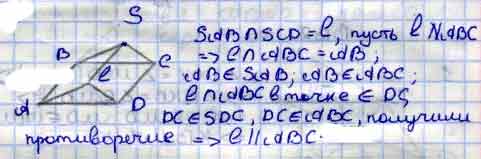 S
B
C
l
A
D
SAB∩SCD=l, пусть l ∦ ABC
=> l∩ABC=AB;
AB∈SAB; AB∈ABC;
l∩ABC в точке ∈ DC,
DC∈SDC, DC∈ABC, получили
противоречие => l||ABC.